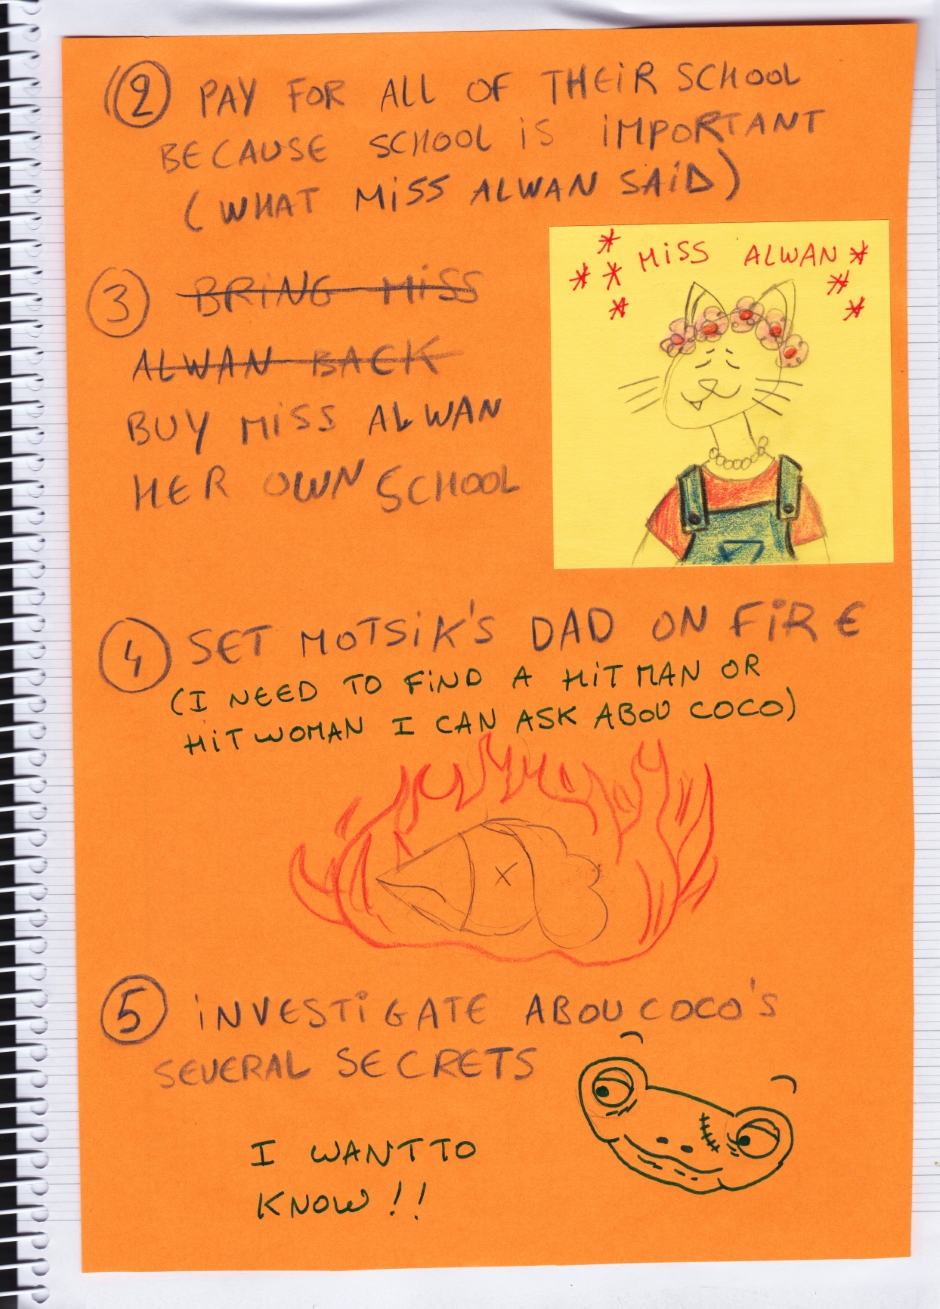 (2) PAY FOR ALL OF THEIR SCHOOL
BECAUSE SCHOOL IS IMPORTANT
(WHAT MISS ALWAN SAID)
3 BRING MISS
ALWAN BACK
BUY MISS ALWAN
HER OWN SCHOOL
MISS ALWAN
4 SET MOTSIK'S DAD ON FIRE
(I NEED TO FIND A HITMAN OR
HITWOMAN I CAN ASK ABOU COCO)
5 INVESTIGATE ABOU COCO'S
SEVERAL SECRETS
I WANT TO
KNOW!!